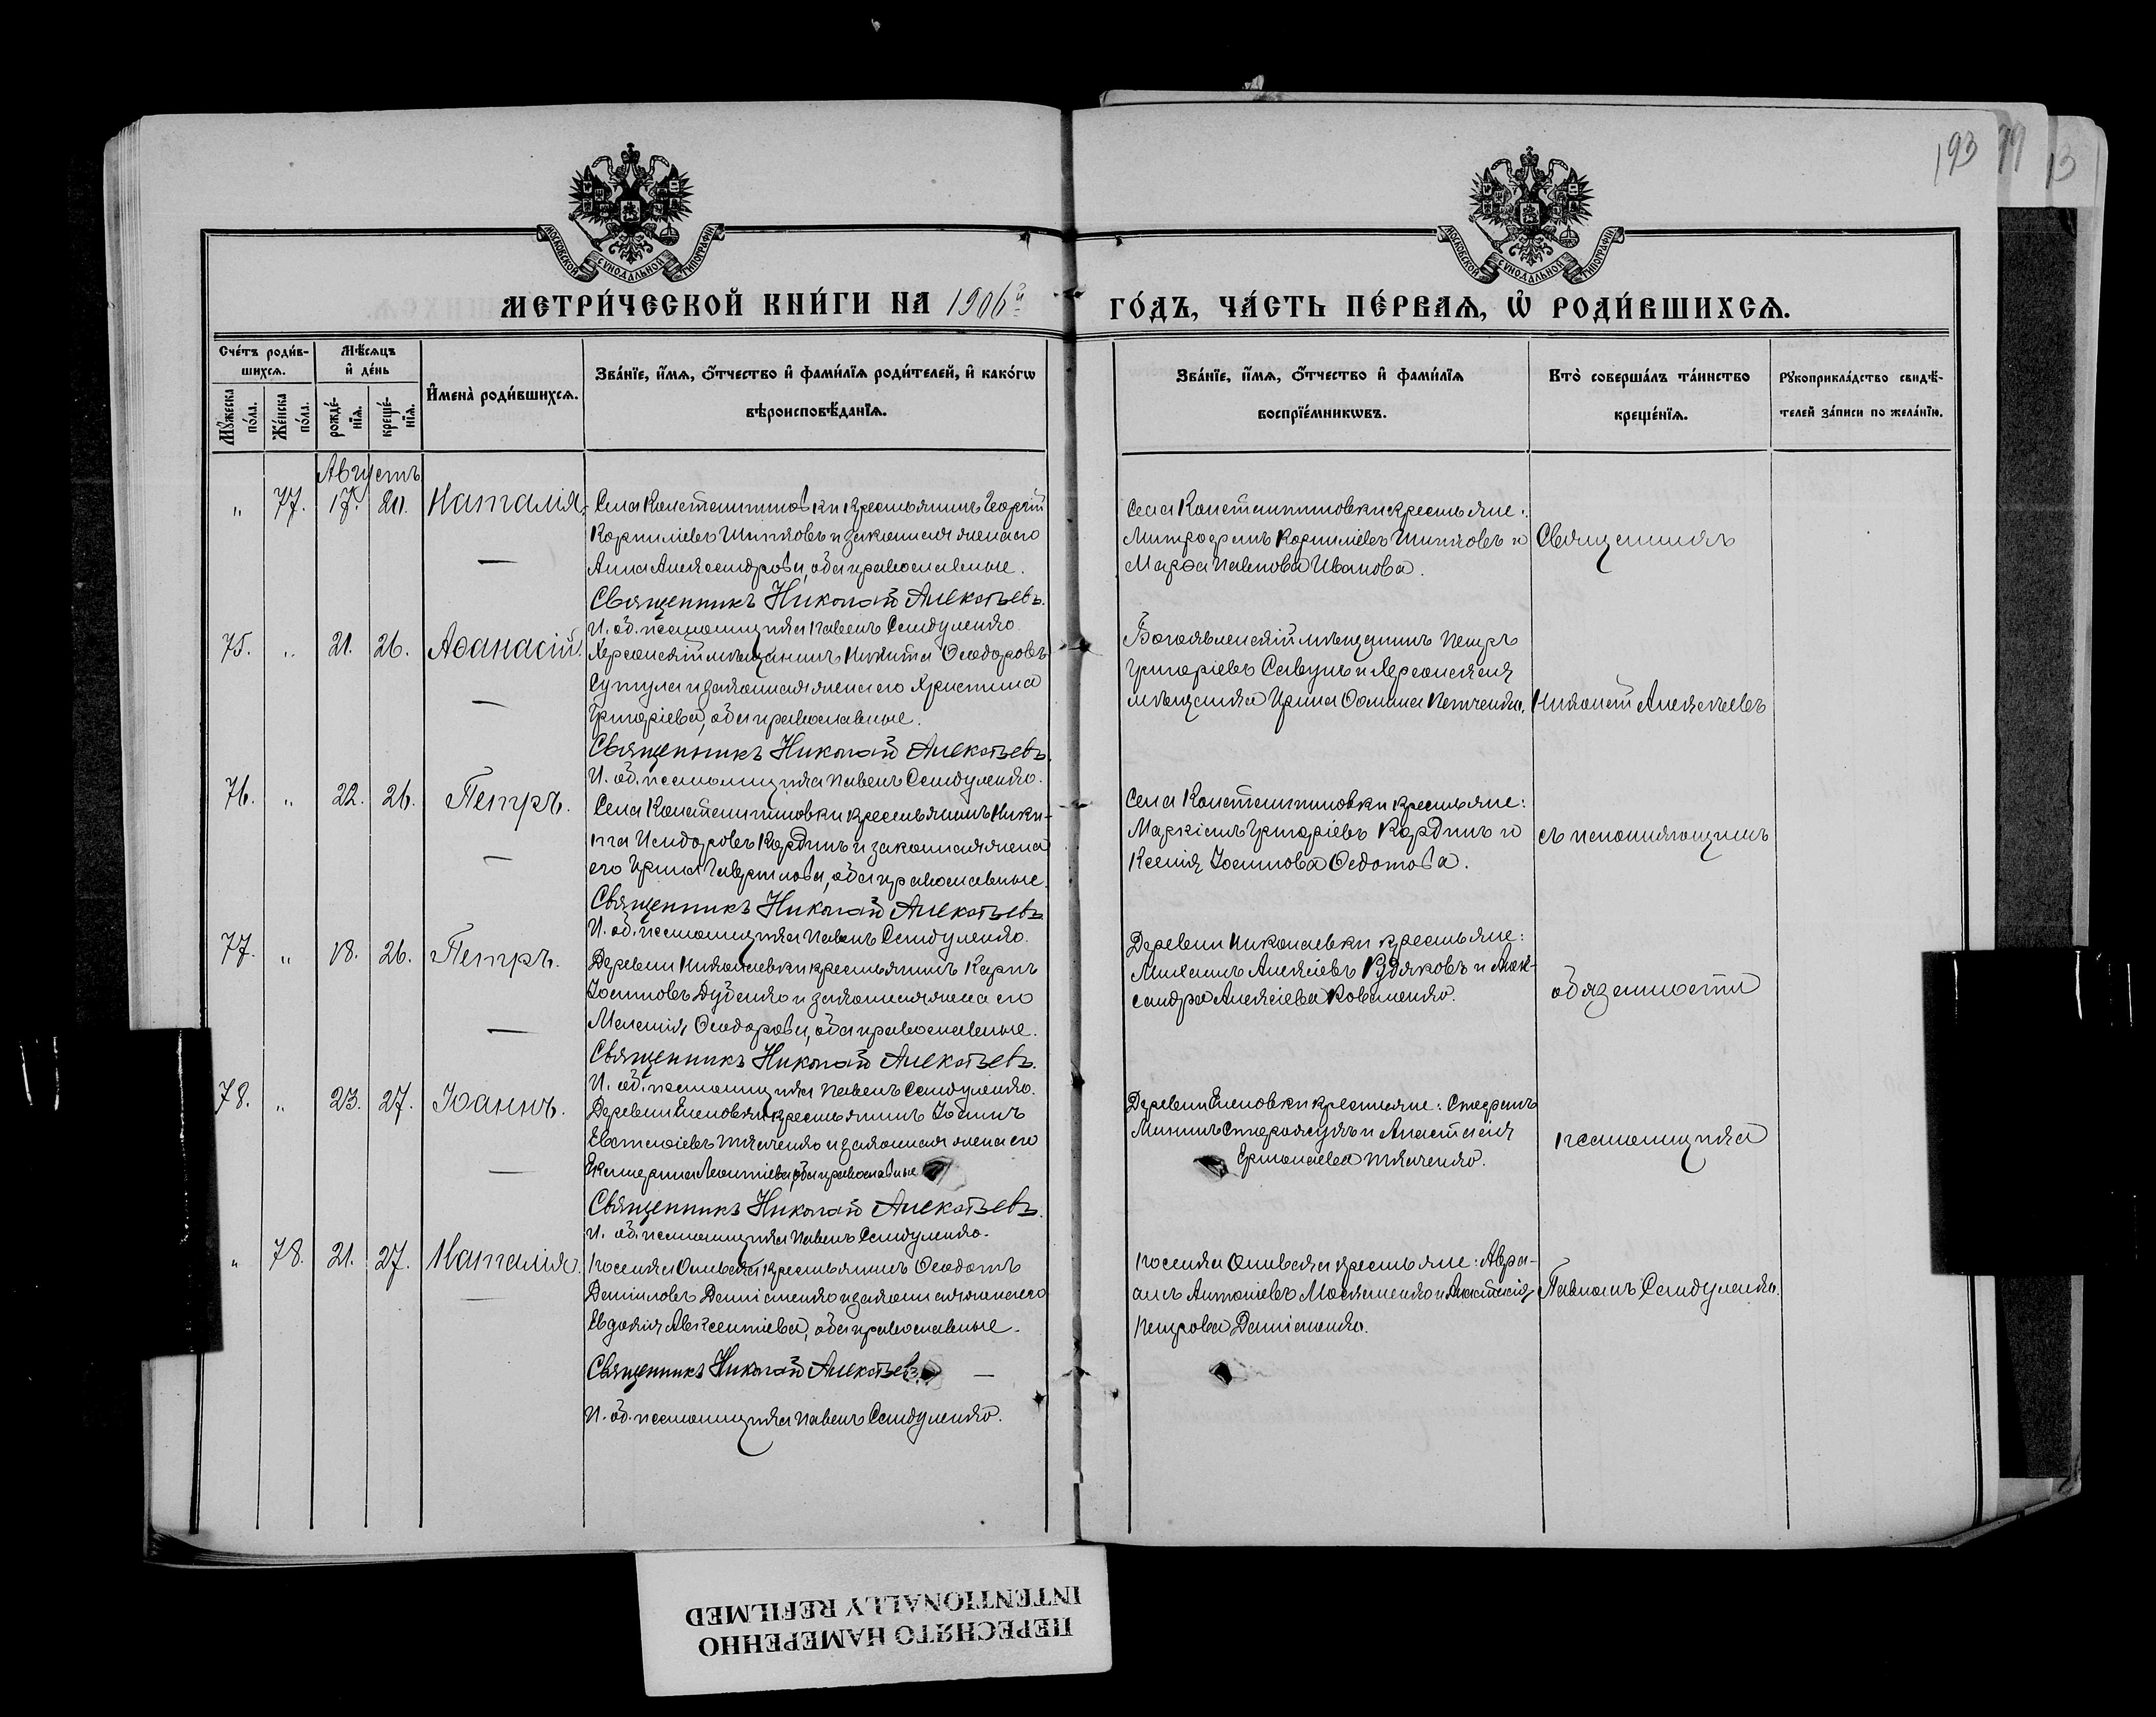 193
МОСКОВСКОЙ СѴНОДАЛЬНОЙ ТИПОГРАФІИ
МОСКОВСКОЙ СѴНОДАЛЬНОЙ ТИПОГРАФІИ
МЕТРИ́ЧЕСКОЙ КНИ́ГИ НА 1906й ГО́ДЪ, ЧА́СТЬ ПЕ́РВАѦ, Ѡ҆ РОДИ́ВШИХСѦ.
Сче́тъ роди́в-
шихсѧ.
Мѣ́сѧцъ
и҆ де́нь
Мꙋ́жеска по́ла.
Же́нска по́ла.
рожде́-
нїѧ.
креще́-
нїѧ.
И҆мена̀ роди́вшихсѧ.
Зва́нїе, и҆́мѧ, ѻ҆́тчество и҆ фами́лїѧ роди́телей, и҆ како́гѡ
вѣроисповѣ́данїѧ.
Зва́нїе, и҆́мѧ, ѻ҆́тчество и҆ фами́лїѧ
воспрїе́мникѡвъ.
Кто̀ соверша́лъ та́инство
креще́нїѧ.
Рꙋкоприкла́дство свидѣ́-
телей за́писи по жела́нїю.
Августъ
„ 77. 17. 20. Наталія.
Села Константиновки крестьянинъ Георгій
Корниліевъ Шитяовъ и законная жена его
Анна Александрова, оба православные.
Священникъ Николай Алекстьевъ.
И. об. псаломщика Павелъ Сандуленко.
Села Константиновки крестьяне:
Митрофанъ Корниліевъ Шитяовъ и
Марѳа Павлова Иванова.
Священникъ
75. „ 21. 26. Аѳанасій.
Херсонскій мѣщанинъ Никита Ѳеодоровъ
Сутула и законная жена его Христина
Григоріева, оба православные.
Священникъ Николай Алекстьевъ.
И. об. псаломщика Павелъ Сандуленко.
Богоявленскій мѣщанинъ Петръ
Григоріевъ Савунъ и Херсонская
мѣщанка Ирина Ѳомина Петченко.
Николай Алекстьевъ
76. „ 22. 26. Петръ.
Села Константиновки крестьянинъ Ники-
та Исидоровъ Кардинъ и законная жена
его Ирина Гаврилова, оба православные.
Священникъ Николай Алекстьевъ
И. об. псаломщика Павелъ Сандуленко.
Села Константиновки крестьяне:
Маркіанъ Григоріевъ Кардинъ и
Ксенія Іоаннова Ѳедотова.
съ исполняющимъ
77. „ 18. 26. Петръ.
Деревни Николаевки крестьянинъ Карпъ
Іоанновъ Дубенко и законная жена его
Меланія Ѳеодорова, оба православные.
Священникъ Николай Алекстьевъ.
И. об. псаломщика Павелъ Сандуленко.
Деревни Николаевки крестьяне:
Михаилъ Алексіевъ Кудяковъ и Алек-
сандра Алексіева Коваленко.
обязанности
78. „ 23. 27. Іоаннъ.
Деревни Еленовки крестьянинъ Іоаннъ
Евстаѳіевъ Ткаченко и законная жена его
Екатерина Леонтіева, оба православные
Священникъ Николай Алекстьевъ.
И. об. псаломщика Павелъ Сандуленко.
Деревни Еленовки крестьяне: Стефанъ
Мининъ и Анастасія
Ермолаева Ткаченко.
псаломщика
„ 78. 21. 27. Наталія.
Поселка Ольвска крестьянинъ Ѳеодотъ
Даніиловъ Даншенко и законная жена его
Евдокія Авксентіева, оба православные.
Священникъ Николай Алекстьевъ.
И. об. псаломщика Павелъ Сандуленко.
Поселка Ольвска крестьяне: Авра-
амъ Антоніевъ Москаленко и Анастасія
Петрова Даншенко.
Павломъ Сандуленко.
ПЕРЕСНЯТО НАМЕРЕННО
INTENTIONALLY REFILMED